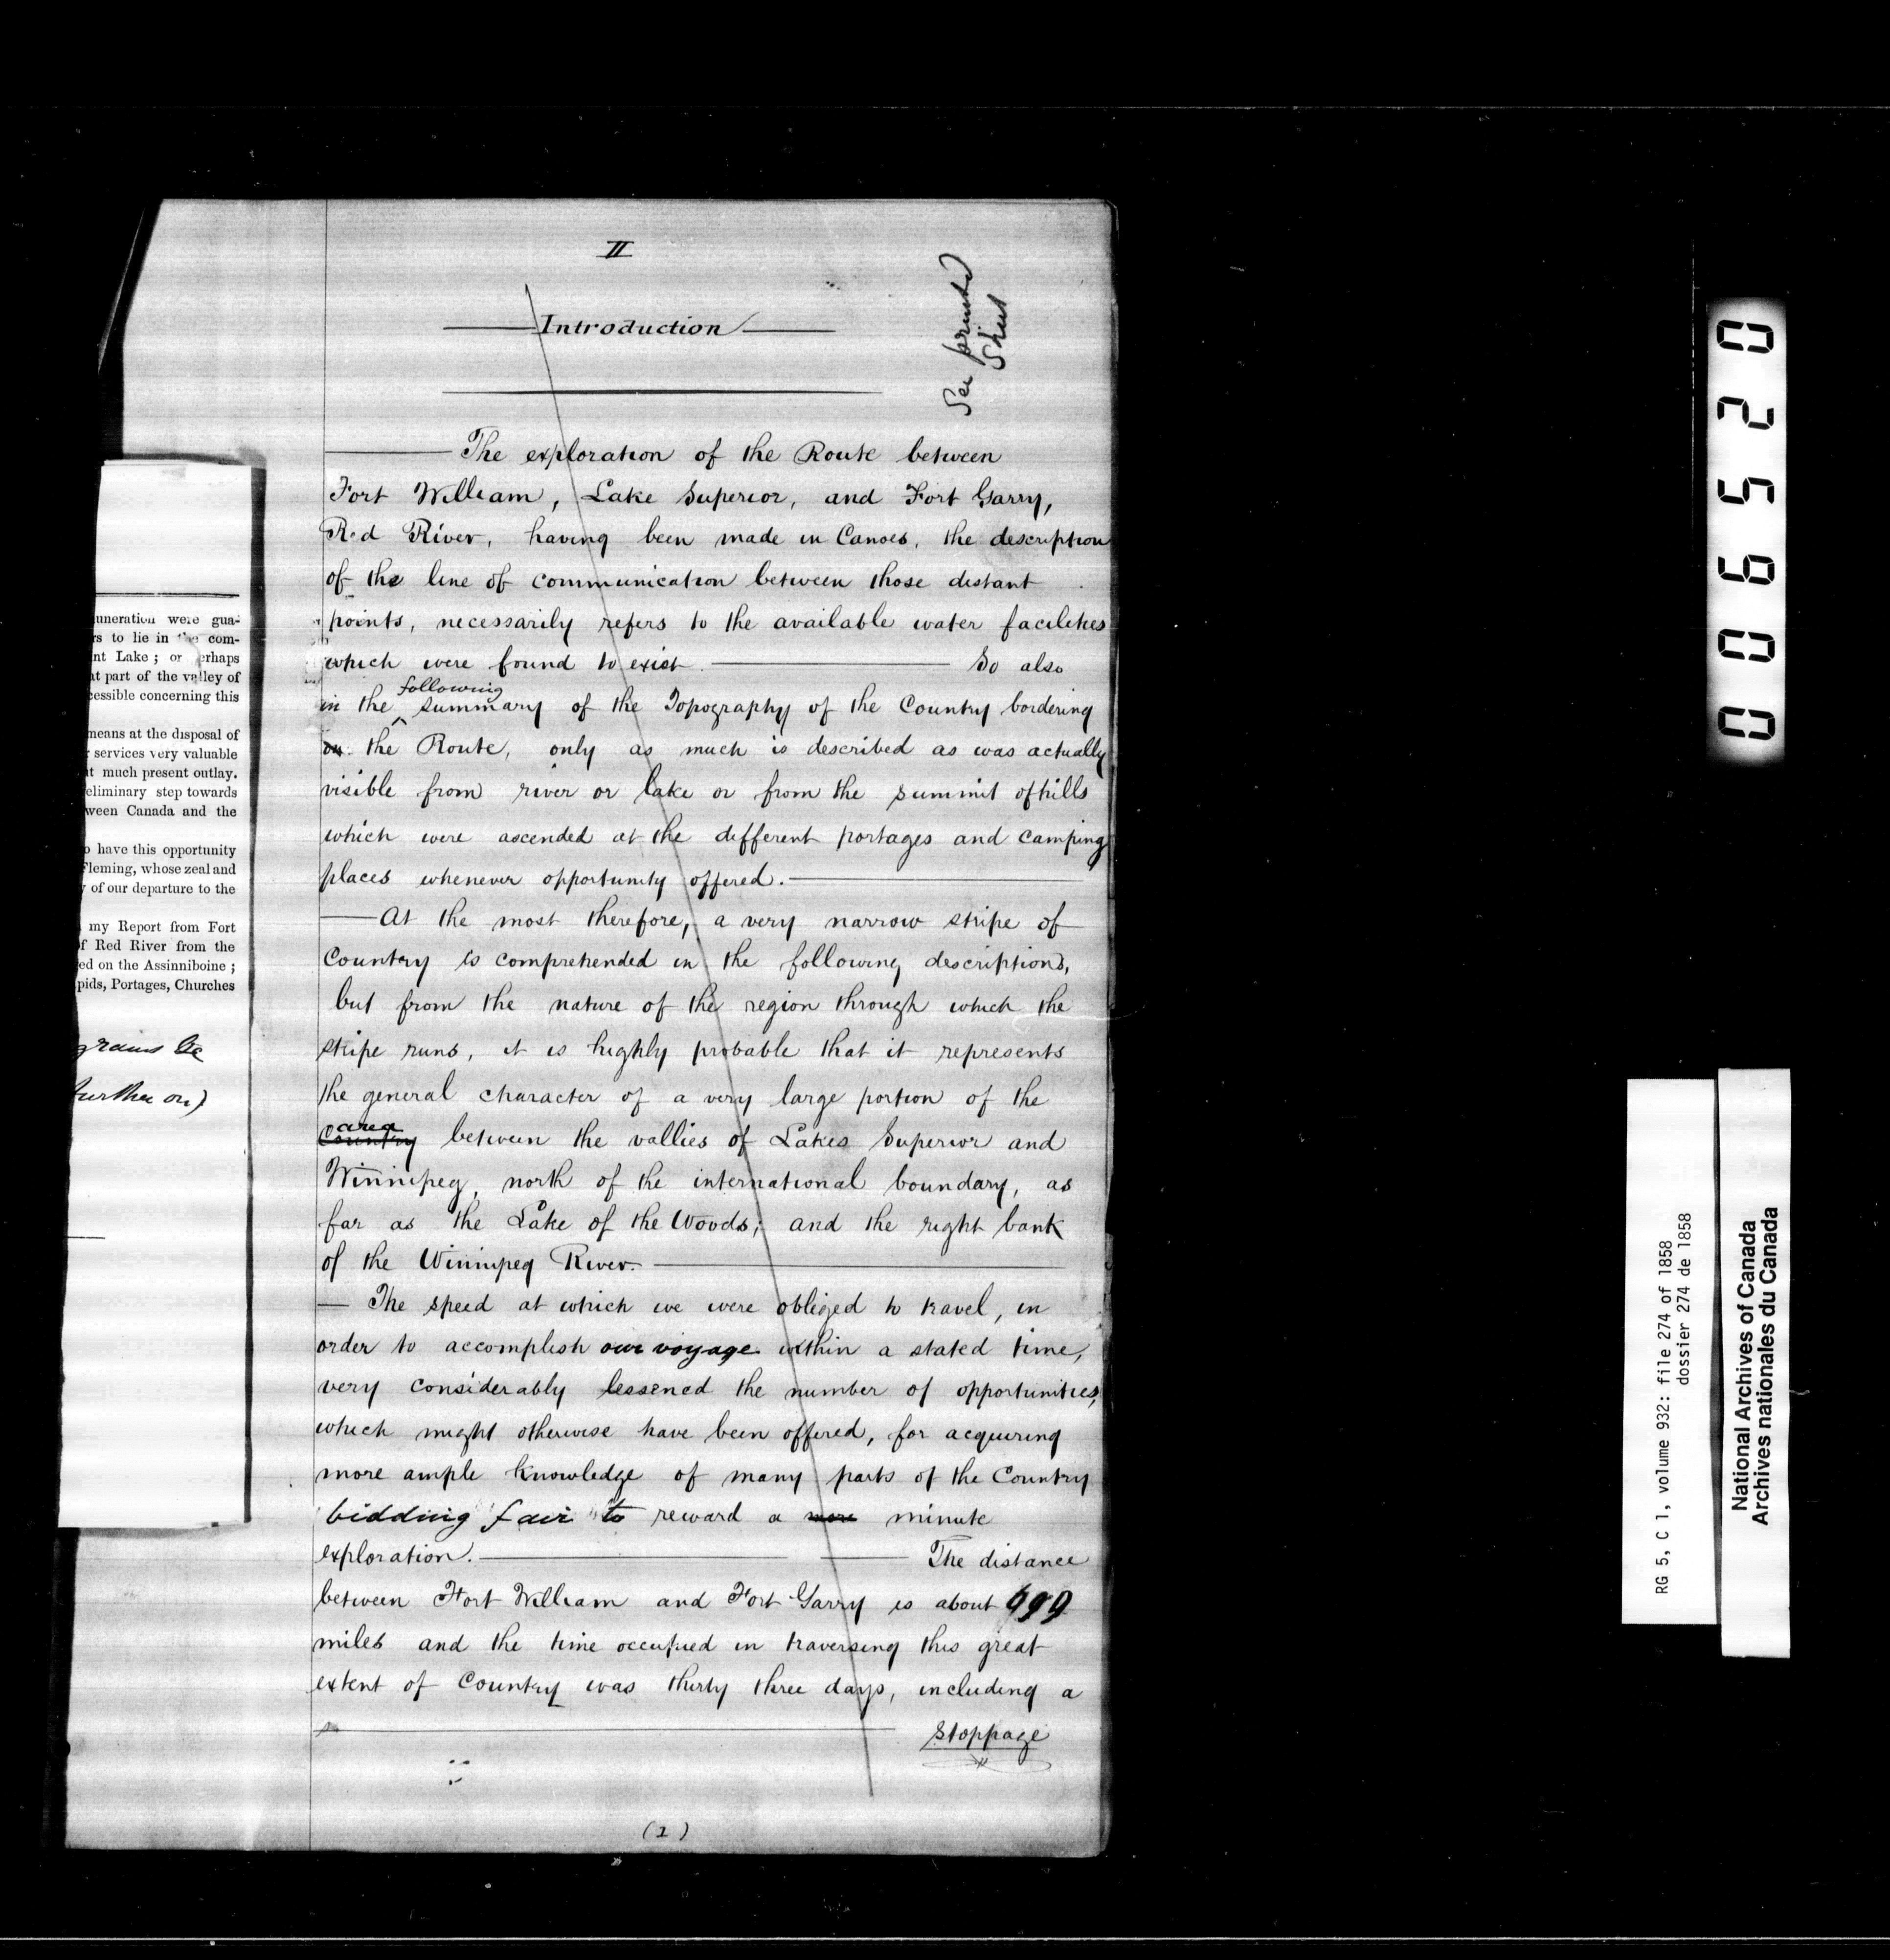 II
See printed
Sheet
Introduction
The exploration of the Route between
Fort William, Lake Superior, and Fort Garry,
Red River, having been made in Canoes, the description
of the line of communication between those distant
points, necessarily refers to the available water facilities
which were found to exist. So also
following
in the ^ summary of the Topography of the Country bordering
on the Route, only as much is described as was actually
visible from river or lake or from the summit of hills
which were ascended at the different portages and camping
places whenever opportunity offered.
At the most therefore, a very narrow stripe of
Country is comprehended in the following descriptions,
but from the nature of the region through which the
stripe runs, it is highly probable that it represents
the general character of a very large portion of the
area
Country between the vallies of Lakes Superior and
Winnipeg, north of the international boundary, as
far as the Lake of the Woods; and the right bank
of the Winnipeg River.
The speed at which we were obliged to travel, in
order to accomplish our voyage within a stated time,
very considerably lessened the number of opportunities,
which might otherwise have been offered, for acquiring
more ample knowledge of many parts of the Country
bidding fair to reward a more minute
exploration. The distance
between Fort William and Fort Garry is about
miles and the time occupied in traversing this great
extent of Country was thirty three days, including a
stoppage
(1)
uneration were gua-
rs to lie in the com-
nt Lake ; or perhaps
at part of the valley of
cessible concerning this
means at the disposal of
r services very valuable
ut much present outlay.
eliminary step towards
ween Canada and the
o have this opportunity
Fleming, whose zeal and
y of our departure to the
my Report from Fort
of Red River from the
ed on the Assinniboine ;
pids, Portages, Churches
be
further on)
006520
RG 5, C 1, volume 932: file 274 of 1858
dossier 274 de 1858
National Archives of Canada
Archives nationales du Canada